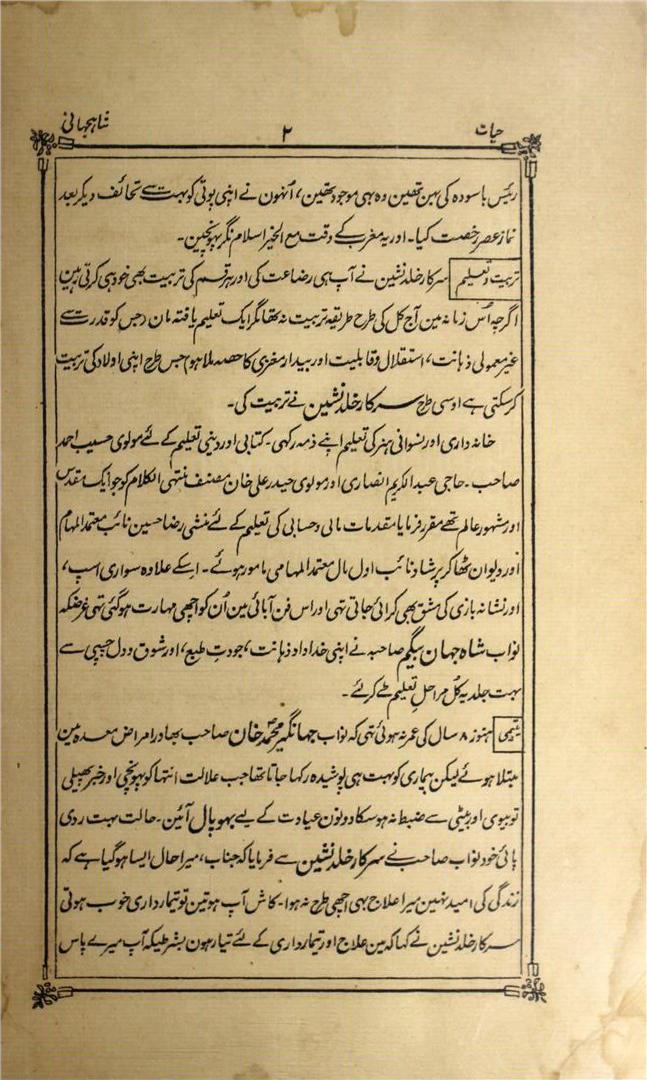 حیات ۲ شاہجہانی
رئیس باسودہ کی بہن تھین وہ بہی موجود تھین، اُنہون نے اپنی پوتی کو بہت سے تحائف دیکر بعد
نماز عصر رخصت کیا۔ اور یہ مغرب کے وقت مع الخیر اسلام نگر پہونچین۔
تربیت و تعلیم سرکار خلد نشین نے آپ ہی رضاعت کی اور ہر قسم کی تربیت بھی خود ہی کرتی رہین
اگرچہ اُس زمانہ مین آج کل کی طرح طریقۂ تربیت نہ تھا مگر ایک تعلیم یافتہ مان (جس کو قدرت سے
غیر معمولی ذہانت، استقلال و قابلیت اور بیدار مغزی کا حصہ ملا ہو) جس طرح اپنی اولاد کی تربیت
کر سکتی ہے اوسی طرح سرکار خلد نشین نے تربیت کی۔
خانہ داری اور نسوانی ہنر کی تعلیم اپنے ذمہ رکہی۔ کتابی اور دینی تعلیم کے لئے مولوی حسیب احمد
صاحب۔ حاجی عبد الکریم انصاری اور مولوی حیدر علی خان مصنف منتہی الکلام کو جو ایک مقدس
اور مشہور عالم تھے مقرر فرمایا مقدمات مالی و حسابی کی تعلیم کے لئے منشی رضا حسین نائب معتمد المہام
اور دیوان ٹھاکر پرشاد نائب اول مال معتمد المہامی مامور ہوئے۔ اسکے علاوہ سواری اسپ،
اور نشانہ بازی کی مشق بھی کرائی جاتی تہی اور اس فن آبائی مین اُن کو اچھی مہارت ہوگئی تہی غرضکہ
نواب شاہ جہان بیگم صاحبہ نے اپنی خداداد ذہانت، جودتِ طبع، اور شوق و دل چسپی سے
بہت جلد یہ کُل مراحل تعلیم طے کرلئے۔
یتیمی ہنوز ۸ سال کی عمر نہ ہوئی تہی کہ نواب جہانگیر محمد خان صاحب بہادر امراض معدہ مین
مبتلا ہوئے لیکن بیماری کو بہت ہی پوشیدہ رکہا جاتا تھا جب علالت انتہا کو پہونچی اور خبر پھیلی
تو بیوی اور بیٹی سے ضبط نہ ہوسکا دونون عیادت کے لیے بہوپال آئین۔ حالت بہت ردی
پائی خود نواب صاحب نے سرکار خلد نشین سے فرمایا کہ جناب، میرا حال ایسا ہوگیا ہے کہ
زندگی کی امید نہین میرا علاج بہی اچھی طرح نہ ہوا۔ کاش آپ ہوتین تو تیمارداری خوب ہوتی
سرکار خلد نشین نے کہا کہ مین علاج اور تیمارداری کے لئے تیار ہون بشرطیکہ آپ میرے پاس